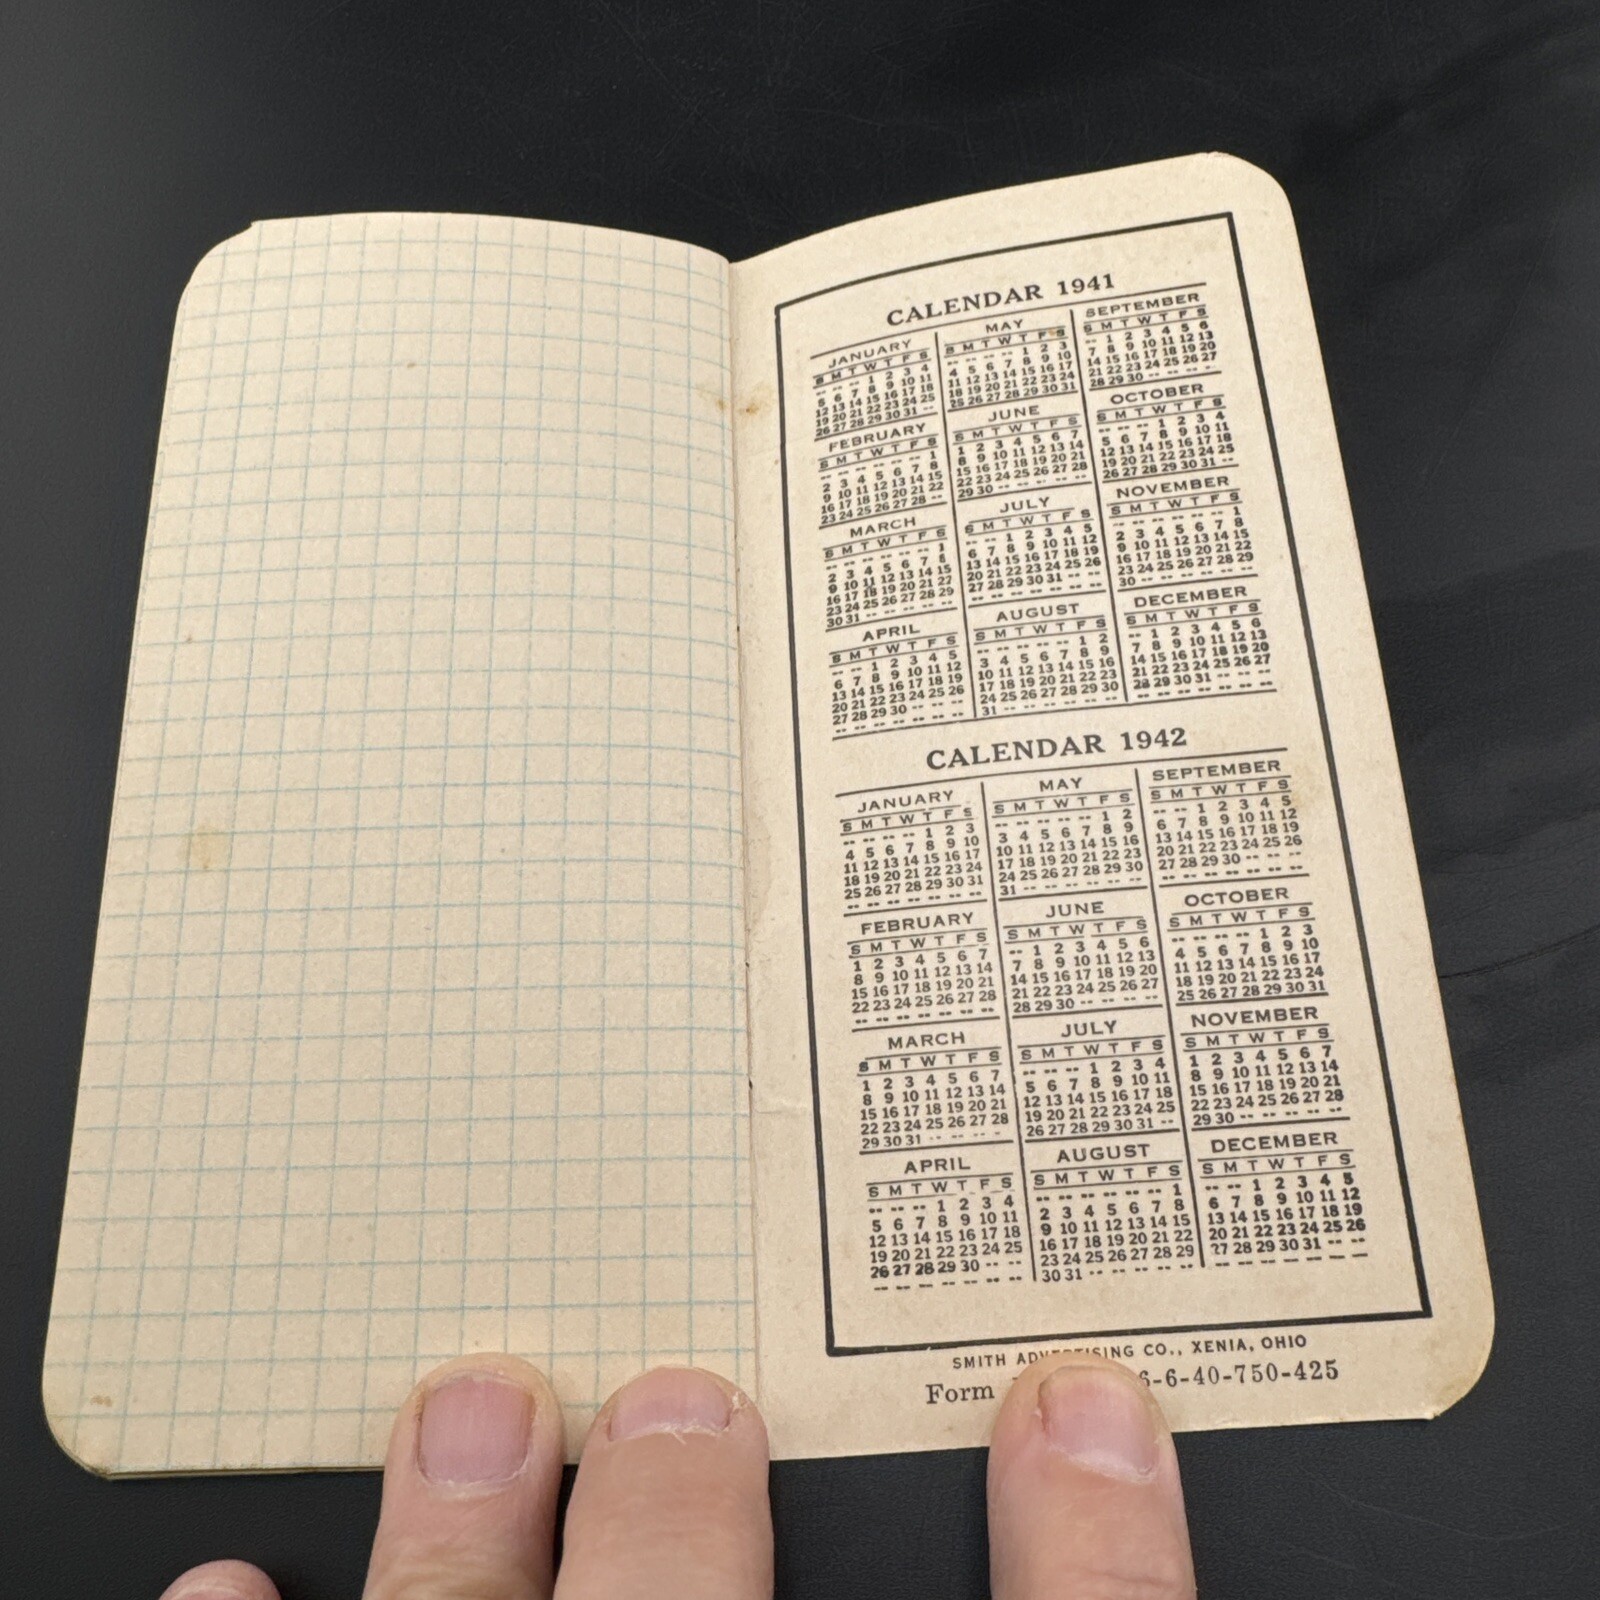 CALENDAR 1941
JANUARY
S M T W T F S
-- -- -- 1 2 3 4
5 6 7 8 9 10 11
12 13 14 15 16 17 18
19 20 21 22 23 24 25
26 27 28 29 30 31 --
FEBRUARY
S M T W T F S
-- -- -- -- -- -- 1
2 3 4 5 6 7 8
9 10 11 12 13 14 15
16 17 18 19 20 21 22
23 24 25 26 27 28 --
MARCH
S M T W T F S
-- -- -- -- -- -- 1
2 3 4 5 6 7 8
9 10 11 12 13 14 15
16 17 18 19 20 21 22
23 24 25 26 27 28 29
30 31 -- -- -- -- --
APRIL
S M T W T F S
-- -- 1 2 3 4 5
6 7 8 9 10 11 12
13 14 15 16 17 18 19
20 21 22 23 24 25 26
27 28 29 30 -- -- --
-- -- -- -- -- -- --
MAY
S M T W T F S
-- -- -- -- 1 2 3
4 5 6 7 8 9 10
11 12 13 14 15 16 17
18 19 20 21 22 23 24
25 26 27 28 29 30 31
JUNE
S M T W T F S
1 2 3 4 5 6 7
8 9 10 11 12 13 14
15 16 17 18 19 20 21
22 23 24 25 26 27 28
29 30 -- -- -- -- --
JULY
S M T W T F S
-- -- 1 2 3 4 5
6 7 8 9 10 11 12
13 14 15 16 17 18 19
20 21 22 23 24 25 26
27 28 29 30 31 -- --
-- -- -- -- -- -- --
AUGUST
S M T W T F S
-- -- -- -- -- 1 2
3 4 5 6 7 8 9
10 11 12 13 14 15 16
17 18 19 20 21 22 23
24 25 26 27 28 29 30
31 -- -- -- -- -- --
SEPTEMBER
S M T W T F S
-- 1 2 3 4 5 6
7 8 9 10 11 12 13
14 15 16 17 18 19 20
21 22 23 24 25 26 27
28 29 30 -- -- -- --
OCTOBER
S M T W T F S
-- -- -- 1 2 3 4
5 6 7 8 9 10 11
12 13 14 15 16 17 18
19 20 21 22 23 24 25
26 27 28 29 30 31 --
NOVEMBER
S M T W T F S
-- -- -- -- -- -- 1
2 3 4 5 6 7 8
9 10 11 12 13 14 15
16 17 18 19 20 21 22
23 24 25 26 27 28 29
30 -- -- -- -- -- --
DECEMBER
S M T W T F S
-- 1 2 3 4 5 6
7 8 9 10 11 12 13
14 15 16 17 18 19 20
21 22 23 24 25 26 27
28 29 30 31 -- -- --
-- -- -- -- -- -- --
CALENDAR 1942
JANUARY
S M T W T F S
-- -- -- -- 1 2 3
4 5 6 7 8 9 10
11 12 13 14 15 16 17
18 19 20 21 22 23 24
25 26 27 28 29 30 31
-- -- -- -- -- -- --
FEBRUARY
S M T W T F S
1 2 3 4 5 6 7
8 9 10 11 12 13 14
15 16 17 18 19 20 21
22 23 24 25 26 27 28
-- -- -- -- -- -- --
MARCH
S M T W T F S
1 2 3 4 5 6 7
8 9 10 11 12 13 14
15 16 17 18 19 20 21
22 23 24 25 26 27 28
29 30 31 -- -- -- --
APRIL
S M T W T F S
-- -- -- 1 2 3 4
5 6 7 8 9 10 11
12 13 14 15 16 17 18
19 20 21 22 23 24 25
26 27 28 29 30 -- --
-- -- -- -- -- -- --
MAY
S M T W T F S
-- -- -- -- -- 1 2
3 4 5 6 7 8 9
10 11 12 13 14 15 16
17 18 19 20 21 22 23
24 25 26 27 28 29 30
31 -- -- -- -- -- --
JUNE
S M T W T F S
-- 1 2 3 4 5 6
7 8 9 10 11 12 13
14 15 16 17 18 19 20
21 22 23 24 25 26 27
28 29 30 -- -- -- --
JULY
S M T W T F S
-- -- -- 1 2 3 4
5 6 7 8 9 10 11
12 13 14 15 16 17 18
19 20 21 22 23 24 25
26 27 28 29 30 31 --
AUGUST
S M T W T F S
-- -- -- -- -- -- 1
2 3 4 5 6 7 8
9 10 11 12 13 14 15
16 17 18 19 20 21 22
23 24 25 26 27 28 29
30 31 -- -- -- -- --
SEPTEMBER
S M T W T F S
-- -- 1 2 3 4 5
6 7 8 9 10 11 12
13 14 15 16 17 18 19
20 21 22 23 24 25 26
27 28 29 30 -- -- --
-- -- -- -- -- -- --
OCTOBER
S M T W T F S
-- -- -- -- 1 2 3
4 5 6 7 8 9 10
11 12 13 14 15 16 17
18 19 20 21 22 23 24
25 26 27 28 29 30 31
NOVEMBER
S M T W T F S
1 2 3 4 5 6 7
8 9 10 11 12 13 14
15 16 17 18 19 20 21
22 23 24 25 26 27 28
29 30 -- -- -- -- --
DECEMBER
S M T W T F S
-- -- 1 2 3 4 5
6 7 8 9 10 11 12
13 14 15 16 17 18 19
20 21 22 23 24 25 26
27 28 29 30 31 -- --
-- -- -- -- -- -- --
SMITH ADVERTISING CO., XENIA, OHIO
Form 6-6-40-750-425